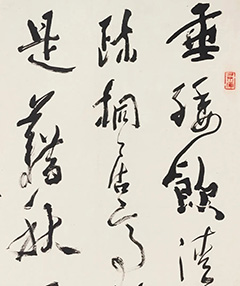 垂緌飲清
疏桐居高
是藉秋